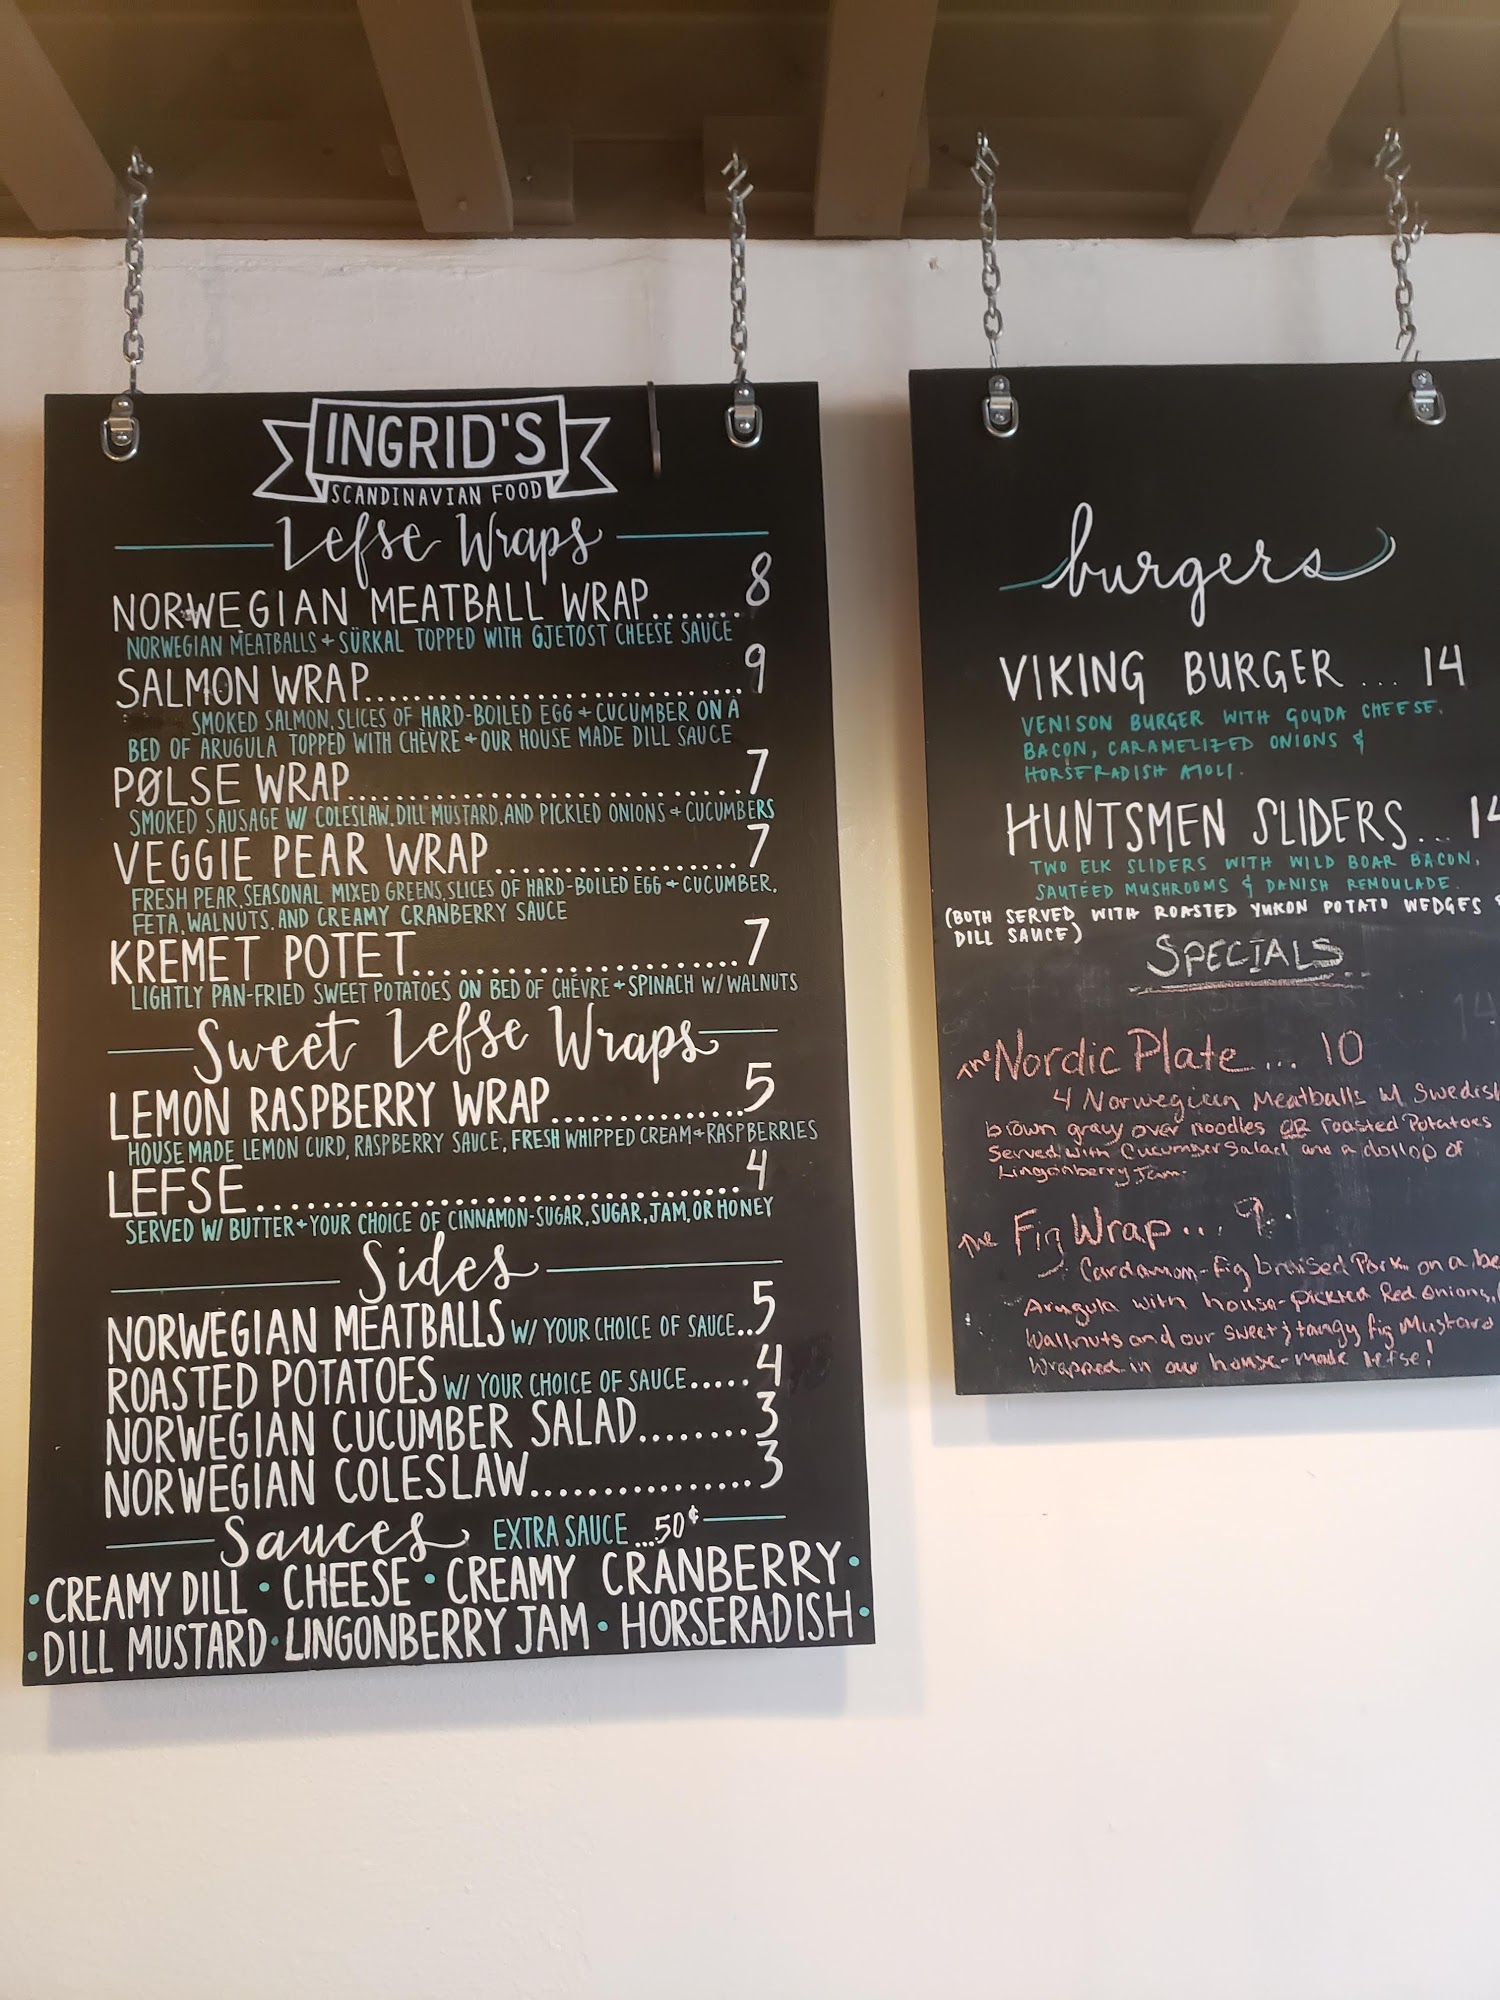 INGRID'S
SCANDINAVIAN FOOD
Lefse Wraps
NORWEGIAN MEATBALL WRAP.......8
NORWEGIAN MEATBALLS + SÜRKAL TOPPED WITH GJETOST CHEESE SAUCE
SALMON WRAP..............................9
SMOKED SALMON, SLICES OF HARD-BOILED EGG + CUCUMBER ON A
BED OF ARUGULA TOPPED WITH CHÈVRE + OUR HOUSE MADE DILL SAUCE
PØLSE WRAP................................7
SMOKED SAUSAGE W/ COLESLAW, DILL MUSTARD, AND PICKLED ONIONS + CUCUMBERS
VEGGIE PEAR WRAP...................7
FRESH PEAR, SEASONAL MIXED GREENS, SLICES OF HARD-BOILED EGG + CUCUMBER,
FETA, WALNUTS, AND CREAMY CRANBERRY SAUCE
KREMET POTET.........................7
LIGHTLY PAN-FRIED SWEET POTATOES ON BED OF CHÉVRE + SPINACH W/ WALNUTS
Sweet Lefse Wraps
LEMON RASPBERRY WRAP...............5
HOUSE MADE LEMON CURD, RASPBERRY SAUCE, FRESH WHIPPED CREAM + RASPBERRIES
LEFSE.....................................4
SERVED W/ BUTTER + YOUR CHOICE OF CINNAMON-SUGAR, SUGAR, JAM, OR HONEY
Sides
NORWEGIAN MEATBALLS W/ YOUR CHOICE OF SAUCE..5
ROASTED POTATOES W/ YOUR CHOICE OF SAUCE.....4
NORWEGIAN CUCUMBER SALAD........3
NORWEGIAN COLESLAW................3
Sauces EXTRA SAUCE ...50¢
• CREAMY DILL • CHEESE • CREAMY CRANBERRY •
• DILL MUSTARD • LINGONBERRY JAM • HORSERADISH •
burgers
VIKING BURGER ... 14
VENISON BURGER WITH GOUDA CHEESE,
BACON, CARAMELIZED ONIONS &
HORSERADISH AIOLI.
HUNTSMEN SLIDERS... 14
TWO ELK SLIDERS WITH WILD BOAR BACON,
SAUTÉED MUSHROOMS & DANISH REMOULADE.
(BOTH SERVED WITH ROASTED YUKON POTATO WEDGES &
DILL SAUCE)
SPECIALS
The Nordic Plate ... 10
4 Norwegian Meatballs w/ Swedish
brown gravy over noodles OR roasted Potatoes
Served with Cucumber Salad and a dollop of
Lingonberry Jam.
The Fig Wrap... 9
Cardamom-fig braised Pork on a be
Arugula with house-pickled Red onions,
Wallnuts and our sweet & tangy fig Mustard
Wrapped in our house-made lefse!